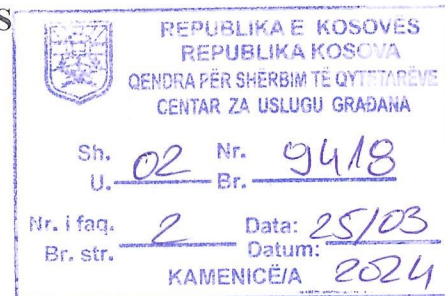 S
REPUBLIKA E KOSOVËS
REPUBLIKA KOSOVA
QENDRA PËR SHËRBIM TË QYTETARËVE
CENTAR ZA USLUGU GRAĐANA
Sh. 02 Nr. 9418
U. Br.
Nr. i faq. 2 Data: 25/03
Br. str. Datum:
KAMENICË/A 2024